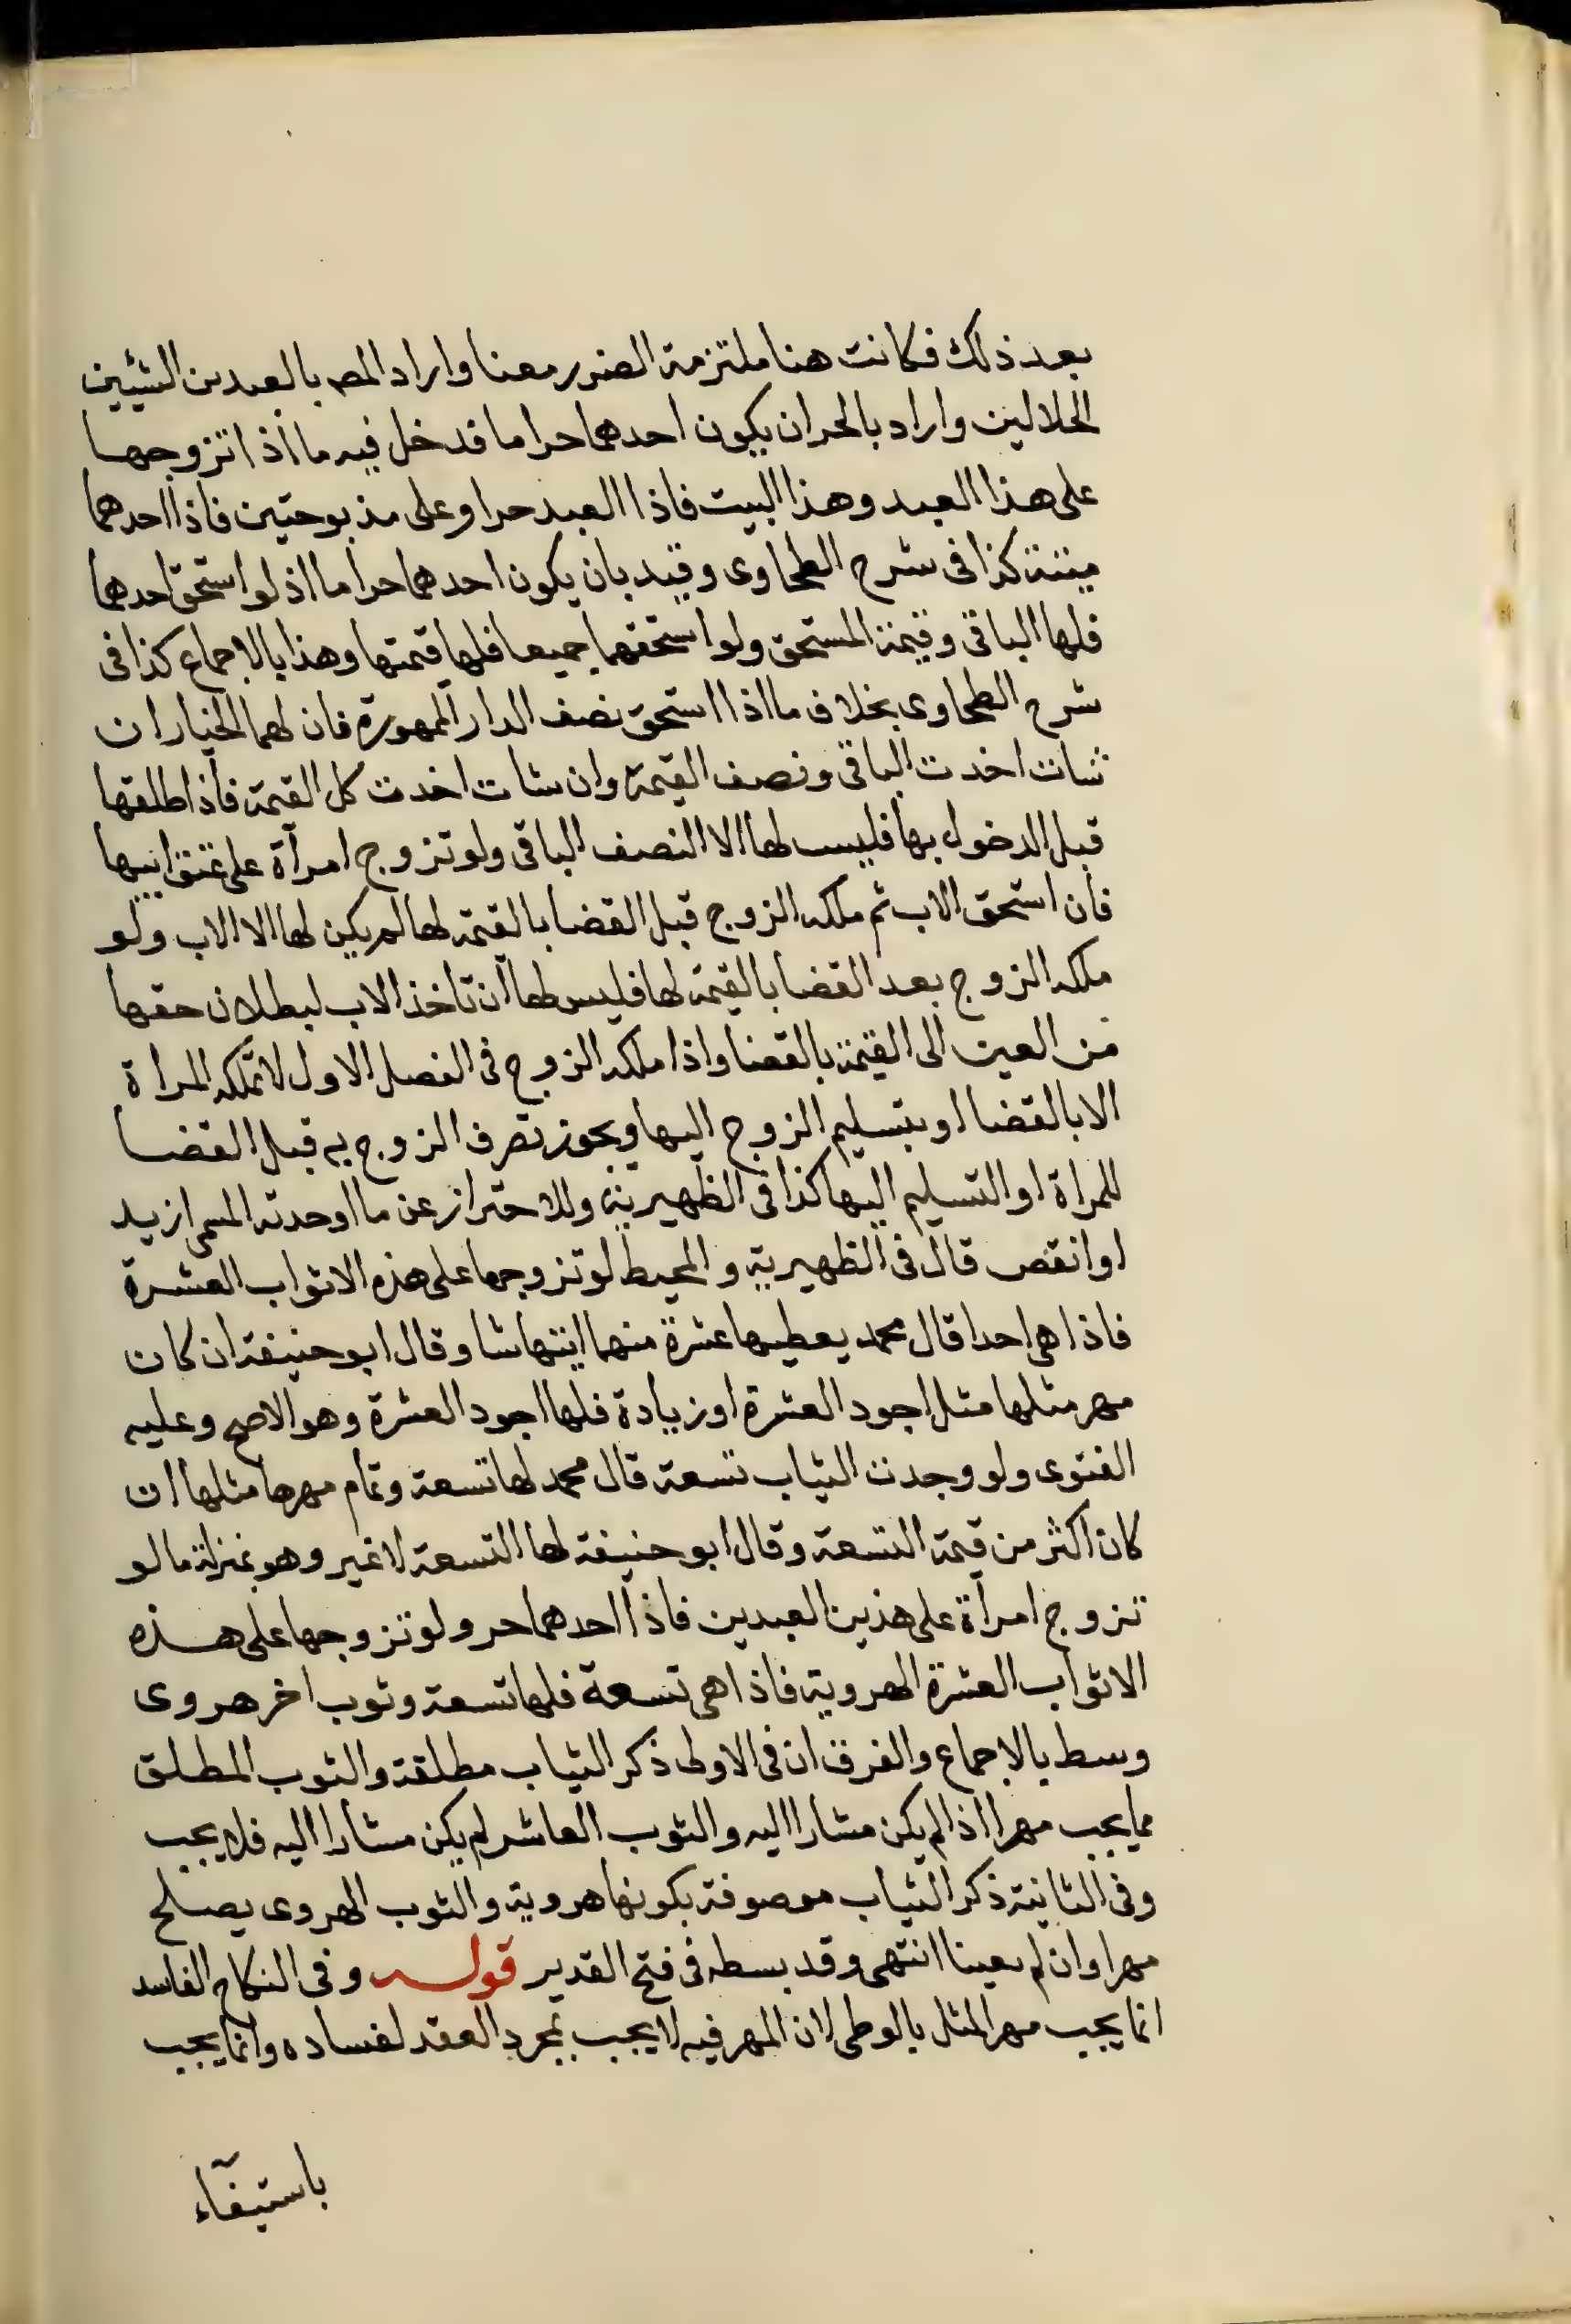 بعد ذلك فكانت هنا ملتزمة الضرر معنا واراد المص بالعبدين الشيئين
الحلالين واراد بالحران يكون احدهما حراما فدخل فيه ما اذا تزوجها
على هذا العبد وهذا البيت فاذا العبد حرا وعلى مذبوحتين فاذا احدهما
ميتة كذا فى شرح الطحاوى وقيد بان يكون احدهما حراما اذ لو استحق احدهما
فلها الباقى وقيمة المستحق ولو استحقهما جميعا فلها قيمتها وهذا بالاجماع كذا فى
شرح الطحاوى بخلاف ما اذا استحق نصف الدار الممهورة فان لهما الخيار ان
شات اخذت الباقى ونصف القيمة وان شات اخذت كل القيمة فاذا طلقها
قبل الدخول بها فليس لها الا النصف الباقى ولو تزوج امرأة على عتق ابيها
فان استحق الاب ثم ملكه الزوج قبل القضا بالقيمة لها لم يكن لها الا الاب ولو
ملكه الزوج بعد القضا بالقيمة لها فليس لها ان تاخذ الاب لبطلان حقها
من العين الى القيمة بالقضا واذا ملكه الزوج فى الفصل الاول لا تملكه المراة
الا بالقضا او بتسليم الزوج اليها ويجوز تصرف الزوج به قبل القضا
للمراة او التسليم اليها كذا فى الظهيرية وللاحتراز عن ما اوحدته المسمى ازيد
او انقص قال فى الظهيرية والمحيط لو تزوجها على هذه الاثواب العشرة
فاذا هى احدا قال محمد يعطيها عشرة منهما ايتها شا وقال ابو حنيفة ان كان
مهر مثلها مثل اجود العشرة او زيادة فلها اجود العشرة وهو الاصح وعليه
الفتوى ولو وجدت الثياب تسعة قال محمد لها تسعة وتمام مهرها مثلها ان
كان اكثر من قيمة التسعة وقال ابو حنيفة لها التسعة لا غير وهو بمنزلة ما لو
تزوج امرأة على هذين العبدين فاذا احدهما حر ولو تزوجها على هذه
الاثواب العشرة الهروية فاذا هى تسعة فلها تسعة وثوب اخر هروى
وسط بالاجماع والفرق ان فى الاولى ذكر الثياب مطلقة والثوب المطلق
مما يجب مهرا اذا لم يكن مشارا اليه والثوب العاشر لم يكن مشارا اليه فلا يجب
وفى الثانية ذكر الثياب موصوفة بكونها هروية والثوب الهروى يصلح
مهرا وان لم يعينا انتهى وقد بسطه فى فتح القدير قوله وفى النكاح الفاسد
انما يجب مهر المثل بالوطى لان المهر فيه لا يجب بمجرد العقد لفساده وانما يجب
باستيفآء